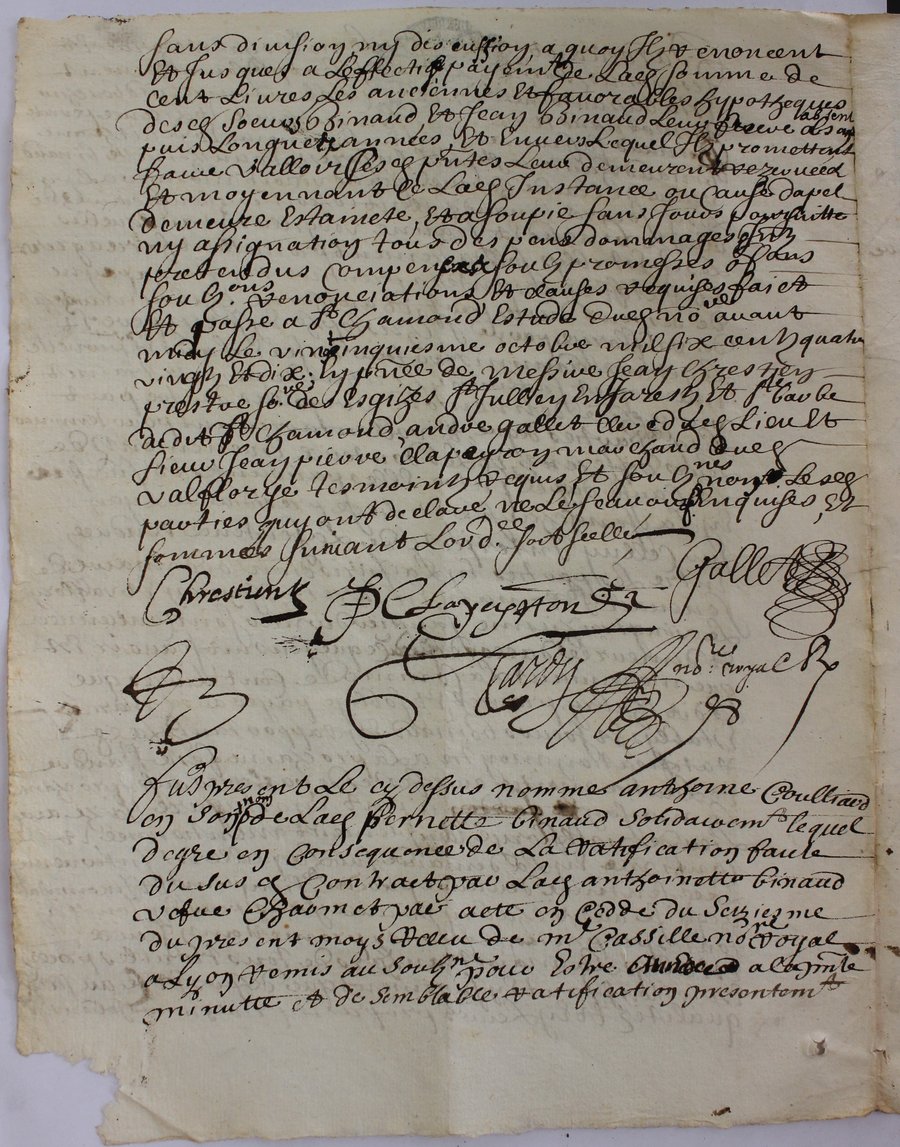 sans division ny discussion a quoy Ilz renoncent
Et Jusques a Leffectif payemt de Lade somme de
cent Livres Les anciennes Et favorables hypotheques
desd soeurs Binaud Et Jean Binaud Leur frere absent
puis Longues années, Et Envers Lequel Ilz promettent
faire valloir Leur demeurent reservees
Et moyennant ce Lad Instance ou cause dapel
demeure Estainte, Et assoupie sans Jours poursuitte
ny assignation tous despens dommages Intz
pretendus compensés soubz promesses obons
soubz.ons renonciations Et clauses requises faict
Et passé a St Chamond Estude dud nore avant
midy Le vingt cinquiesme octobre mil six centz quatre
vingtz Et dix. En pnce de messire Jean Chrestien
prestre des Esglizes St Jullien En Jarestz Et Ste barbe
dudit St Chamond, andre gallet clerc dud Lieu Et
sieur Jean pierre Clapeyron marchand dud
valfleury tesmoingtz requis Et soubznes non Lesd
parties quy ont declaré ne Le scavoir Enquises, Et
sommees suivant Lord.ce soit scellé
Chrestien JP Clapeyron Gallet
Tardy nore royal R
Fust present Le cy dessus nomme anthoine Coulliard
en son nom de Lad pernette binaud solidairemt lequel
degre en Consequence de La ratification faitte
du susd Contract par Lad anthoinette binaud
vefve Chaumet par acte en Cedde du Seziesme
du present moys receu de me Cassille nore royal
a Lyon remis au soubzne pour Estre a la pnte
minutte et de semblable ratification presentemt